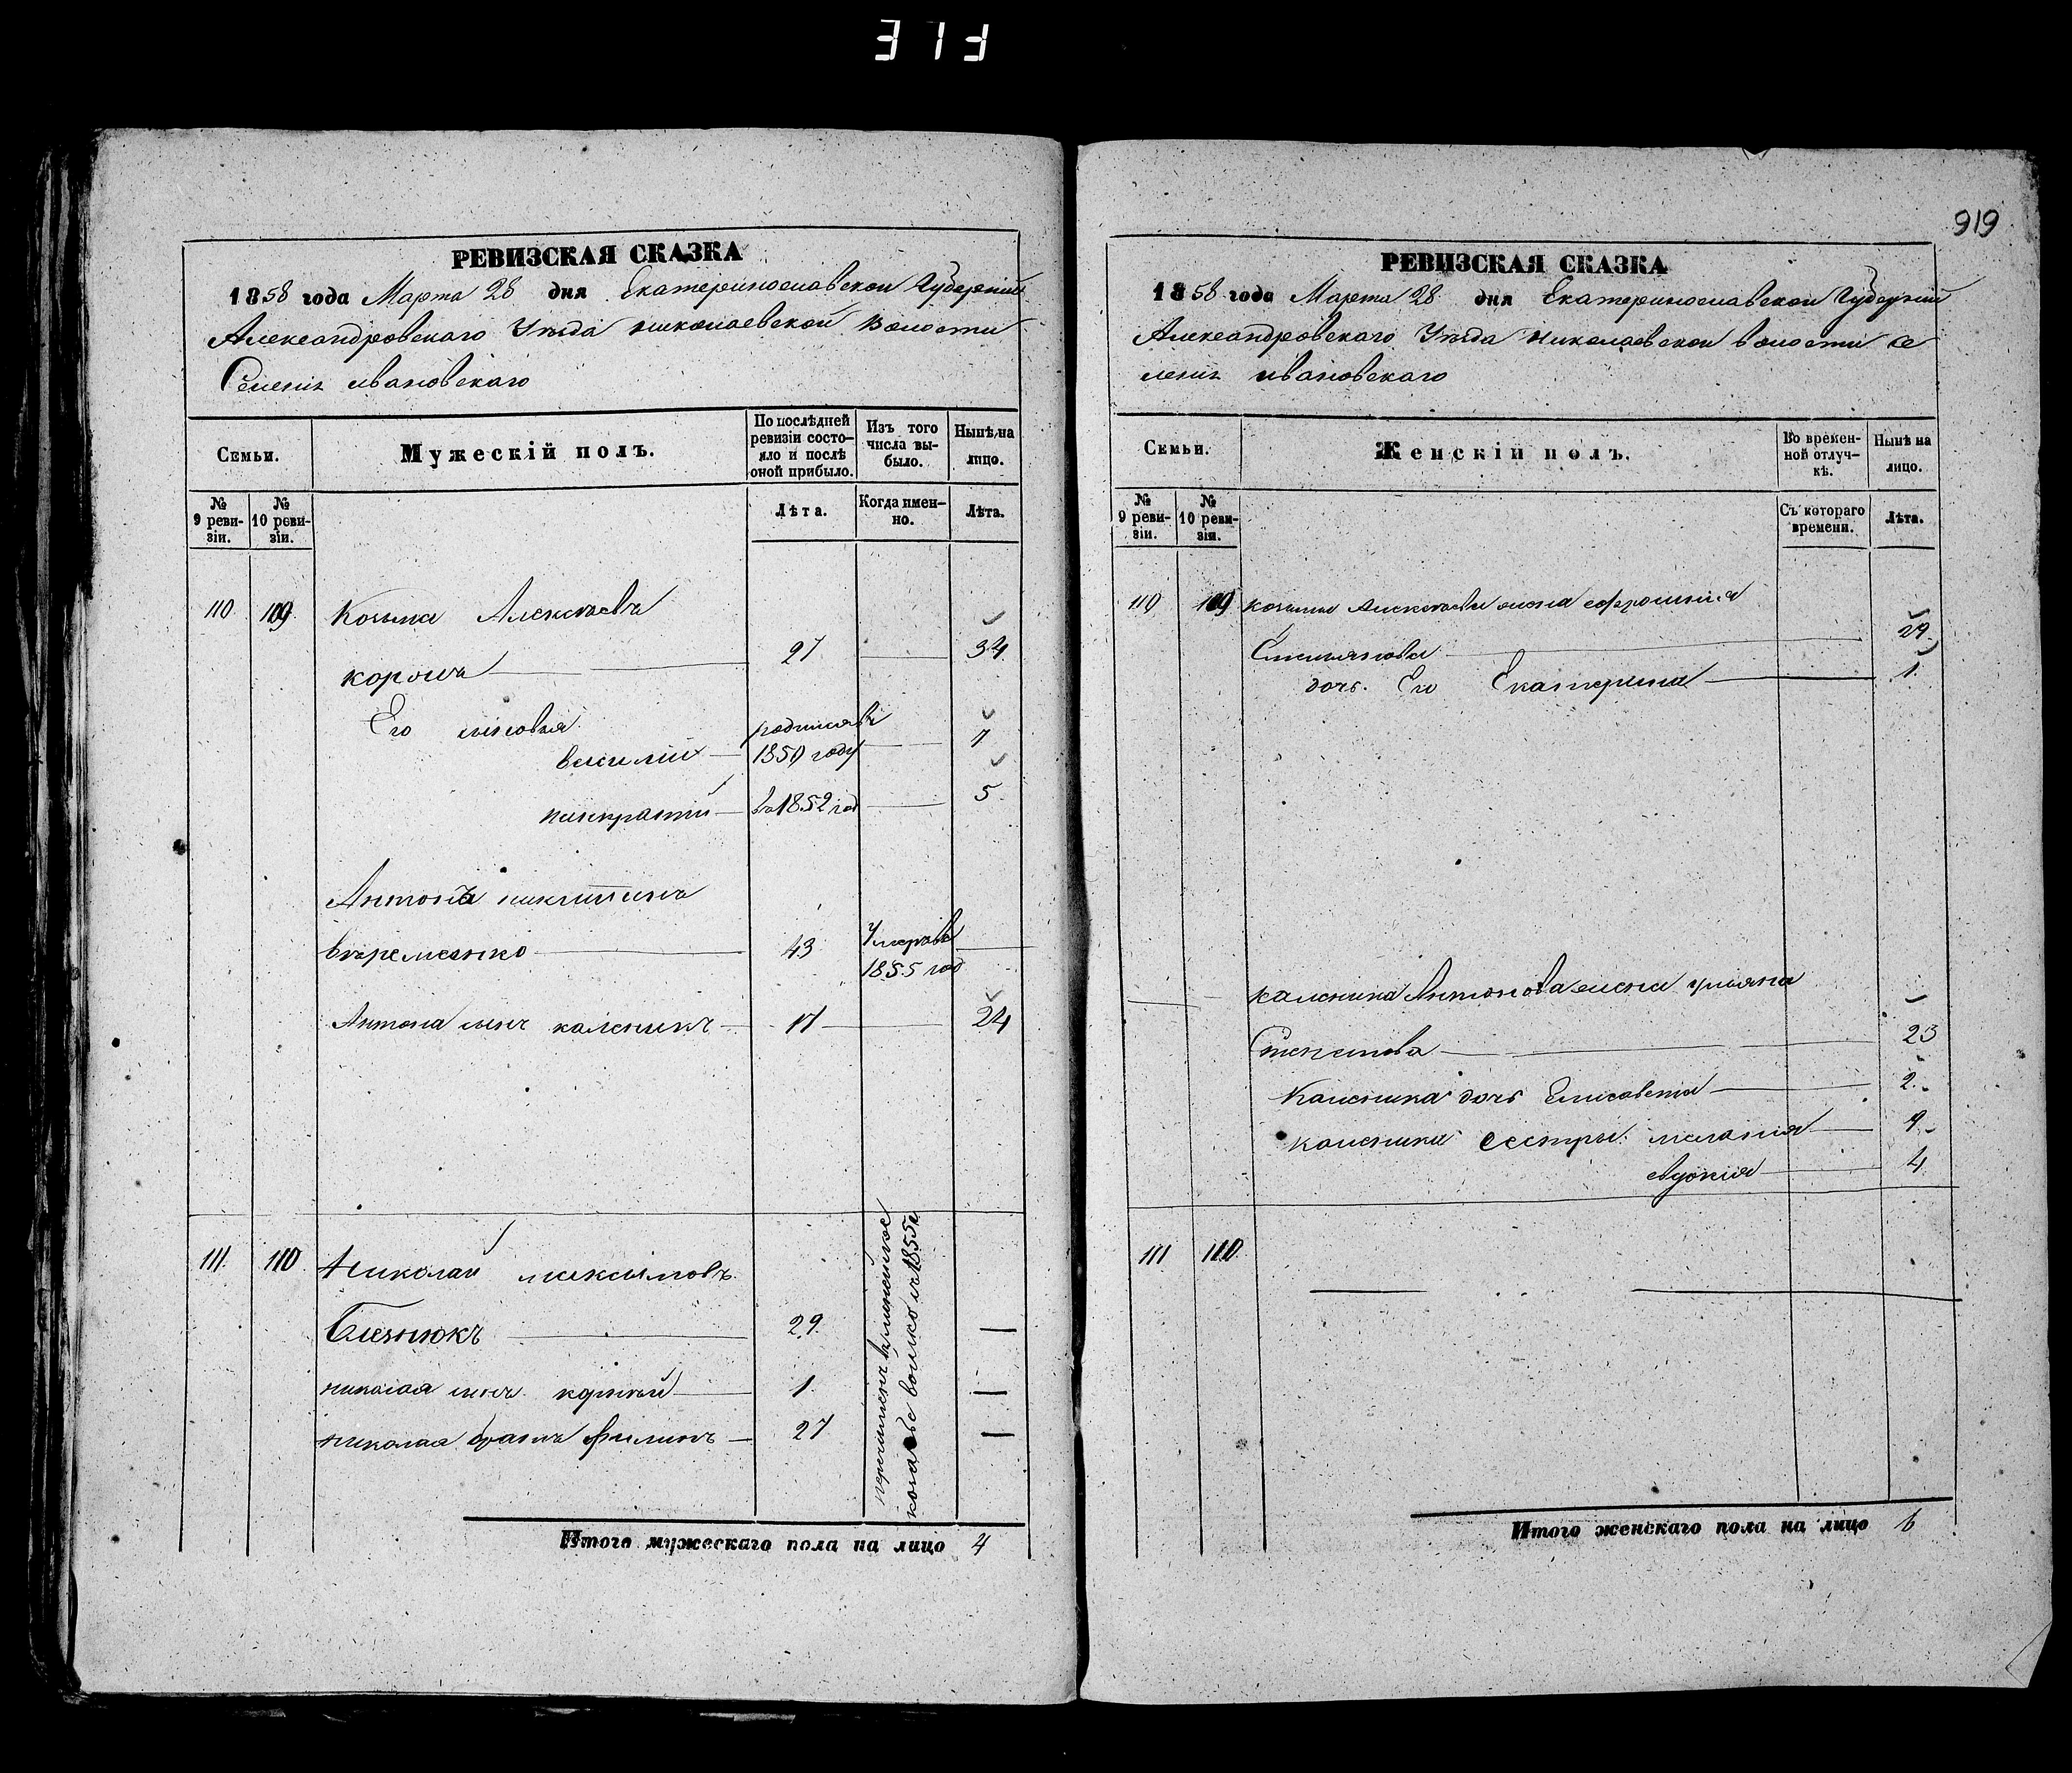 313
РЕВИЗСКАЯ СКАЗКА
1858 года Марта 28 дня Екатеринославской Губернии
Александровскаго Уѣзда николаевской волости
Селенія ивановскаго
Семьи.
Мужескій полъ.
По послѣдней ревизіи состо-
яло и послѣ оной прибыло.
Изъ того числа вы-
было.
Нынѣ на лицо.
№ 9 реви-
зіи.
№ 10 реви-
зіи.
Лѣта.
Когда имен-
но.
Лѣта.
110. 109. Козьма Алексѣевъ
корошъ 27 34
Его сыновья родился въ
василий 1850 году 7
панкратий въ 1852 год 5
Антонъ никитинъ
43 Умеръ въ
1855 год
Антона сынъ каленикъ 17 24
111. 110. Николай максимовъ
29
николая сынъ корнѣй 1
николая братъ филипъ 27
перечисленъ в
козачье войско въ 1855 г
Итого мужескаго пола на лицо 4
919
РЕВИЗСКАЯ СКАЗКА
1858 года Марта 28 дня Екатеринославской Губернии
Александровскаго Уѣзда николаевской волости се
ления ивановскаго
Семьи.
Женскій полъ.
Во времен-
ной отлуч-
кѣ.
Нынѣ на лицо.
№ 9 реви-
зіи.
№ 10 реви-
зія.
Съ котораго времени.
Лѣта.
110 109 козьмы Алексѣева жена ефросиния
29
дочь Его Екатерина 1
каленика Антонова жена ульяна
Степанова 23
Каленика дочь Елисавета 2
каленика сестры мелания 9
евдокия 4
111 110
Итого женскаго пола на лицо 6